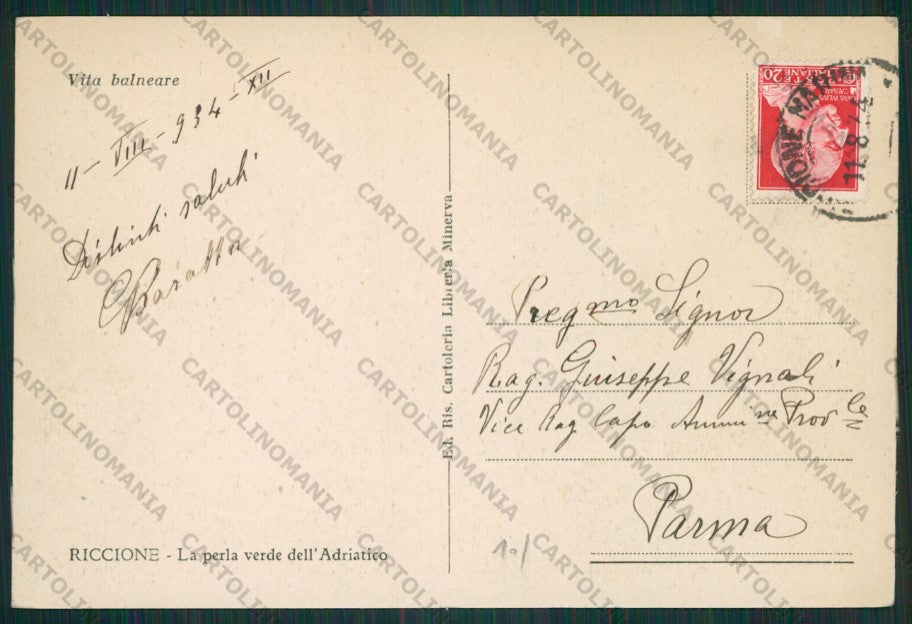 Vita balneare
11-VIII-934-XII
Distinti saluti
RICCIONE - La perla verde dell'Adriatico
Ed. Ris. Cartoleria Libreria Minerva
POSTE ITALIANE
CENT 20
IVLIVS
CAESAR
RICCIONE MARINA
11.8.34
Preg.mo Signor
Rag. Giuseppe Vignali
Vice Rag Capo Ammi.ne Prov.le
Parma
CARTOLINOMANIA